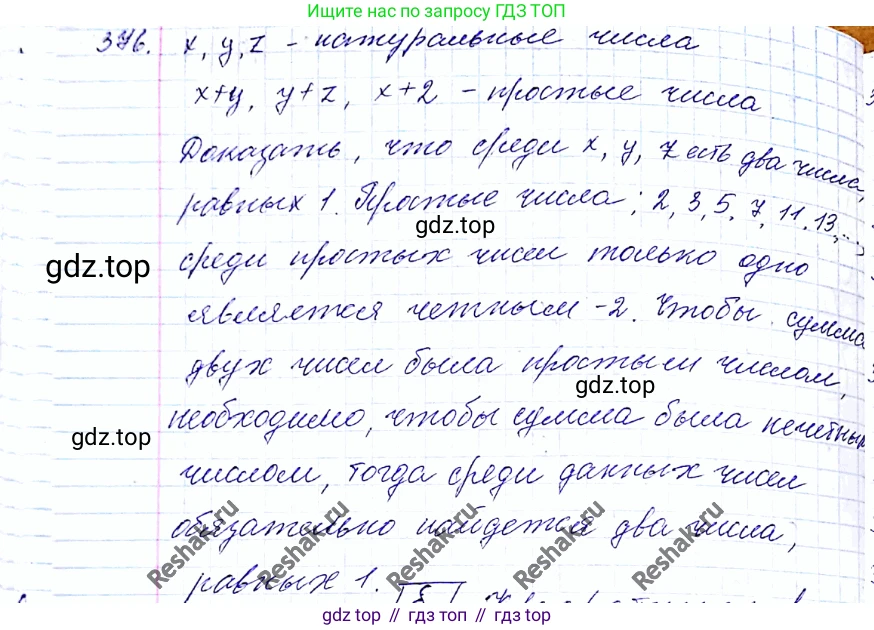 Ищите нас по запросу ГДЗ ТОП
376. x, y, z - натуральные числа
x+y, y+z, x+2 - простые числа
Доказать, что среди x, y, z есть два числа,
равных 1. Простые числа; 2, 3, 5, 7, 11, 13, ...,
gdz.top
gdz.top среди простых чисел только одно
является четным -2. Чтобы сумма
двух чисел была простым числом,
gdz.top
необходимо, чтобы сумма была нечетным
gdz.top
числом, тогда среди данных чисел
обязательно найдется два числа,
равных 1.
Reshak.ru Reshak.ru Reshak.ru Reshak.ru Reshak.ru
gdz.top // гдз топ // gdz.top // гдз топ // gdz.top